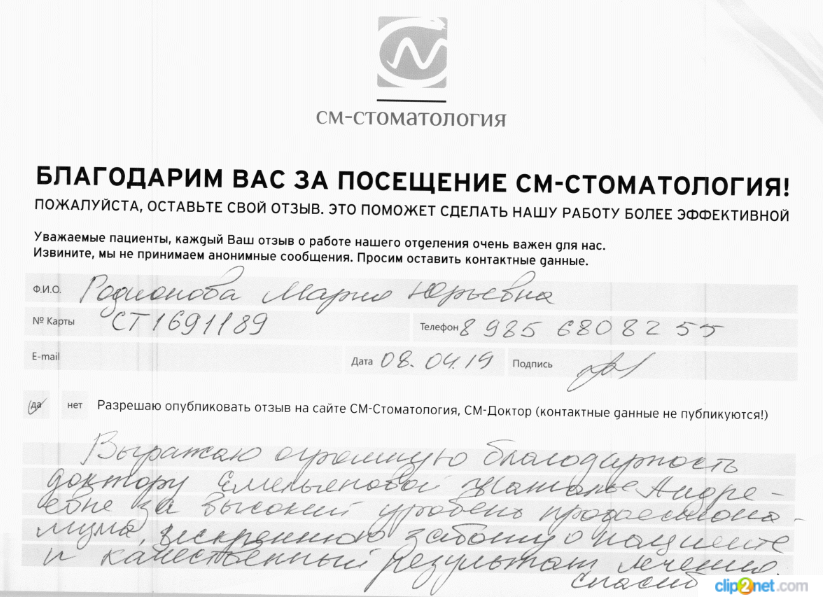 СМ-СТОМАТОЛОГИЯ
БЛАГОДАРИМ ВАС ЗА ПОСЕЩЕНИЕ СМ-СТОМАТОЛОГИЯ!
ПОЖАЛУЙСТА, ОСТАВЬТЕ СВОЙ ОТЗЫВ. ЭТО ПОМОЖЕТ СДЕЛАТЬ НАШУ РАБОТУ БОЛЕЕ ЭФФЕКТИВНОЙ
Уважаемые пациенты, каждый Ваш отзыв о работе нашего отделения очень важен для нас.
Извините, мы не принимаем анонимные сообщения. Просим оставить контактные данные.
Ф.И.О. Родионова Мария Юрьевна
№ Карты СТ1691189 Телефон 8 985 680 82 55
E-mail Дата 08.04.19 Подпись
да нет Разрешаю опубликовать отзыв на сайте СМ-Стоматология, СМ-Доктор (контактные данные не публикуются!)
Выражаю огромную благодарность
доктору Емельяновой Наталье Андре-
евне за высокий уровень профессиона-
лизма, искреннюю заботу о пациенте
и качественный результат лечения.
Спасибо
clip2net.com